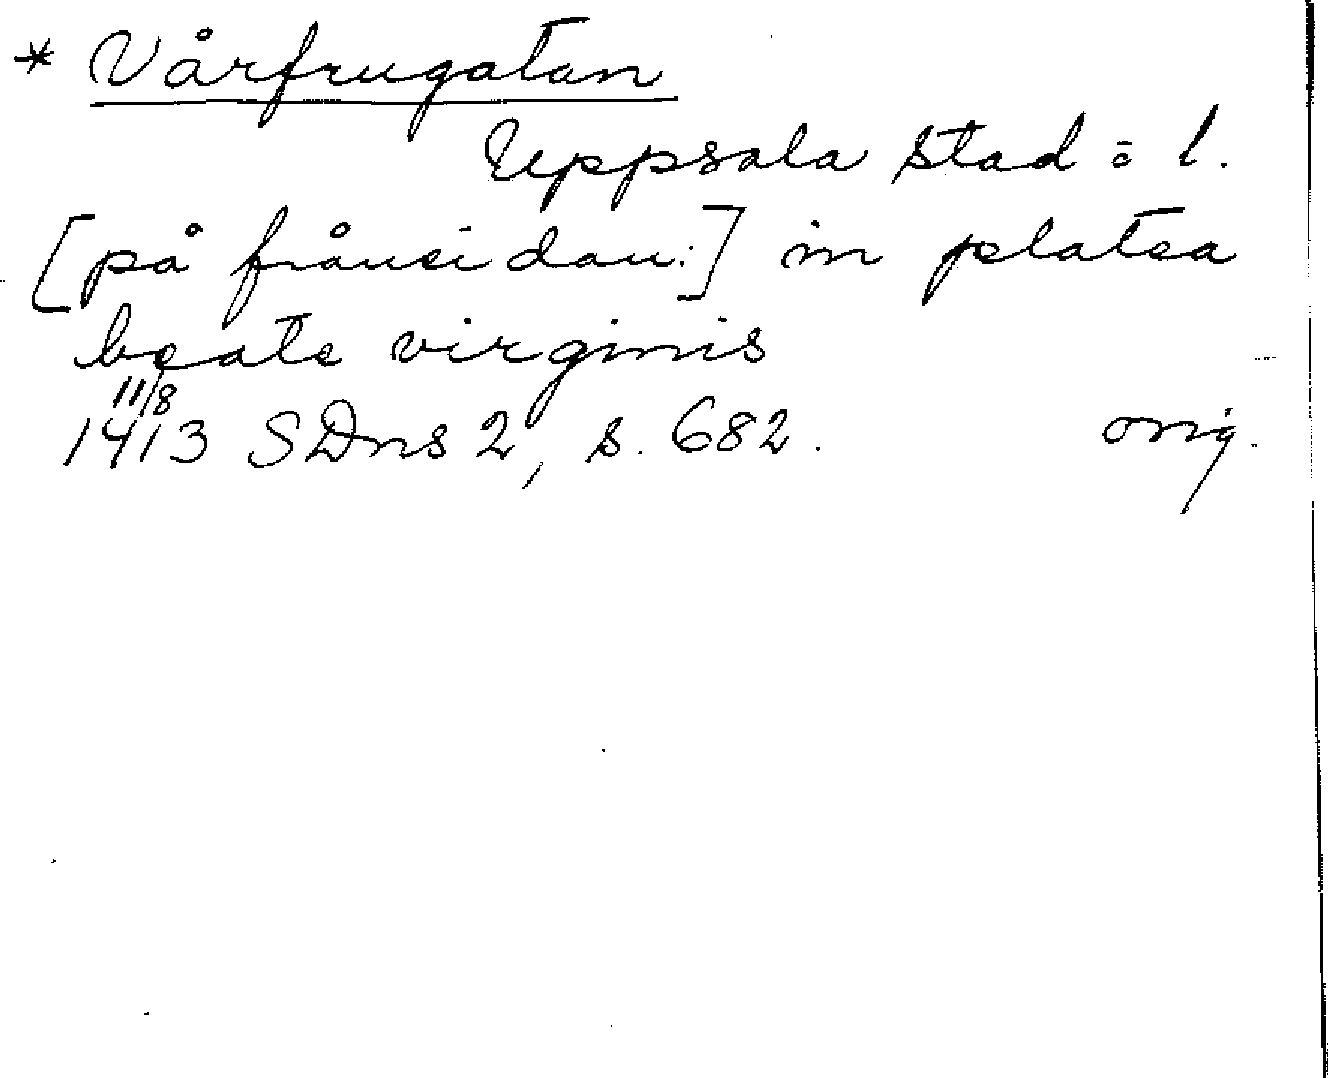 * Vårfrugatan
Uppsala stad o l.
[på frånsidan:] in platea
beate virginis
11/8
1413 SDns 2, s. 682. orig.